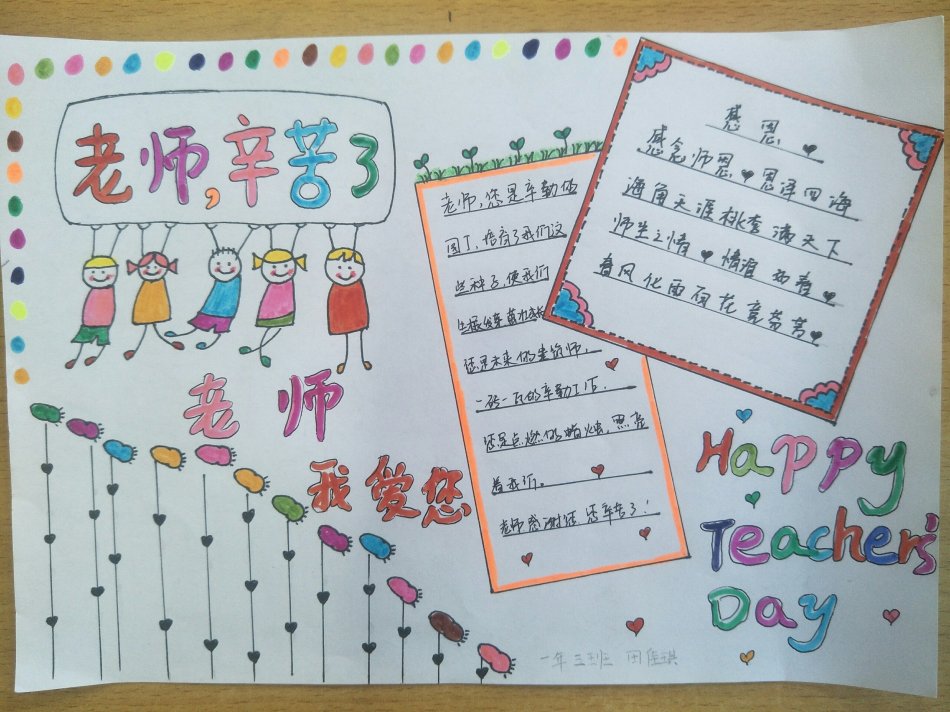 老师,辛苦了
老师
我爱您
老师,您是辛勤的
园丁,培育了我们这
些种子,使我们
还是未来的建筑师,
一砖一瓦的辛勤工作.
还是点燃的蜡烛,照亮
着我们。
老师感谢您 您辛苦了!
感恩
感念师恩 恩泽四海
海角天涯桃李满天下
师生之情 情谊
春风化雨百花竞芬芳
Happy
Teacher's
Day
一年三班 田佳琪